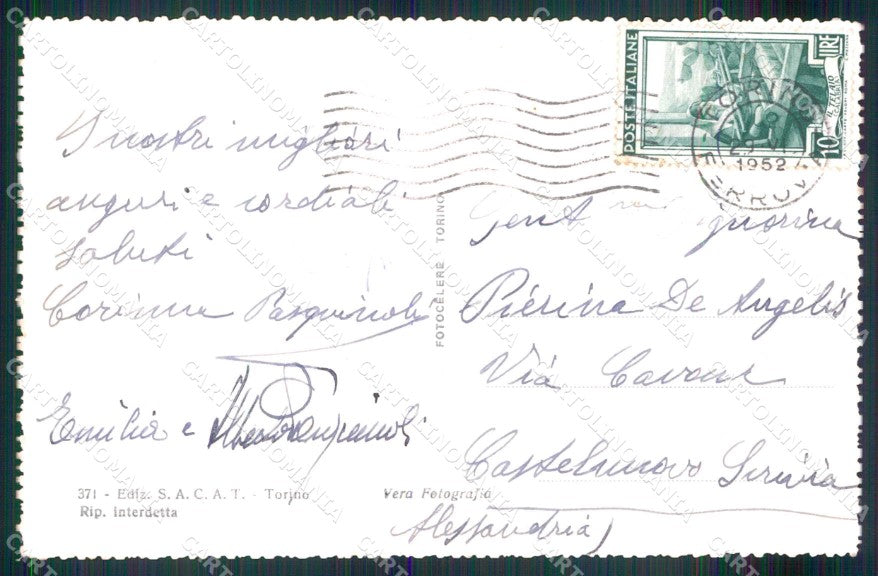 I nostri migliori
auguri e cordiali
saluti
Corinna Pasquinoli
Emilia e
371 - Ediz. S. A. C. A. T. - Torino
Rip. Interdetta
Vera Fotografia
FOTOCELERE TORINO
POSTE ITALIANE
LIRE
10
TORINO
1952
FERROVIA
Gent Signorina
Pierina De Angelis
Via Cavour
Castelnuovo Scrivia
Alessandria)
CARTOLINOMANIA